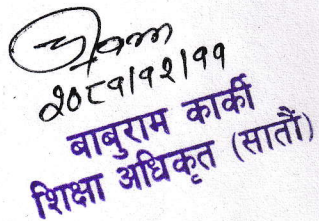 २०८१।१२।११
बाबुराम कार्की
शिक्षा अधिकृत (सातौं)